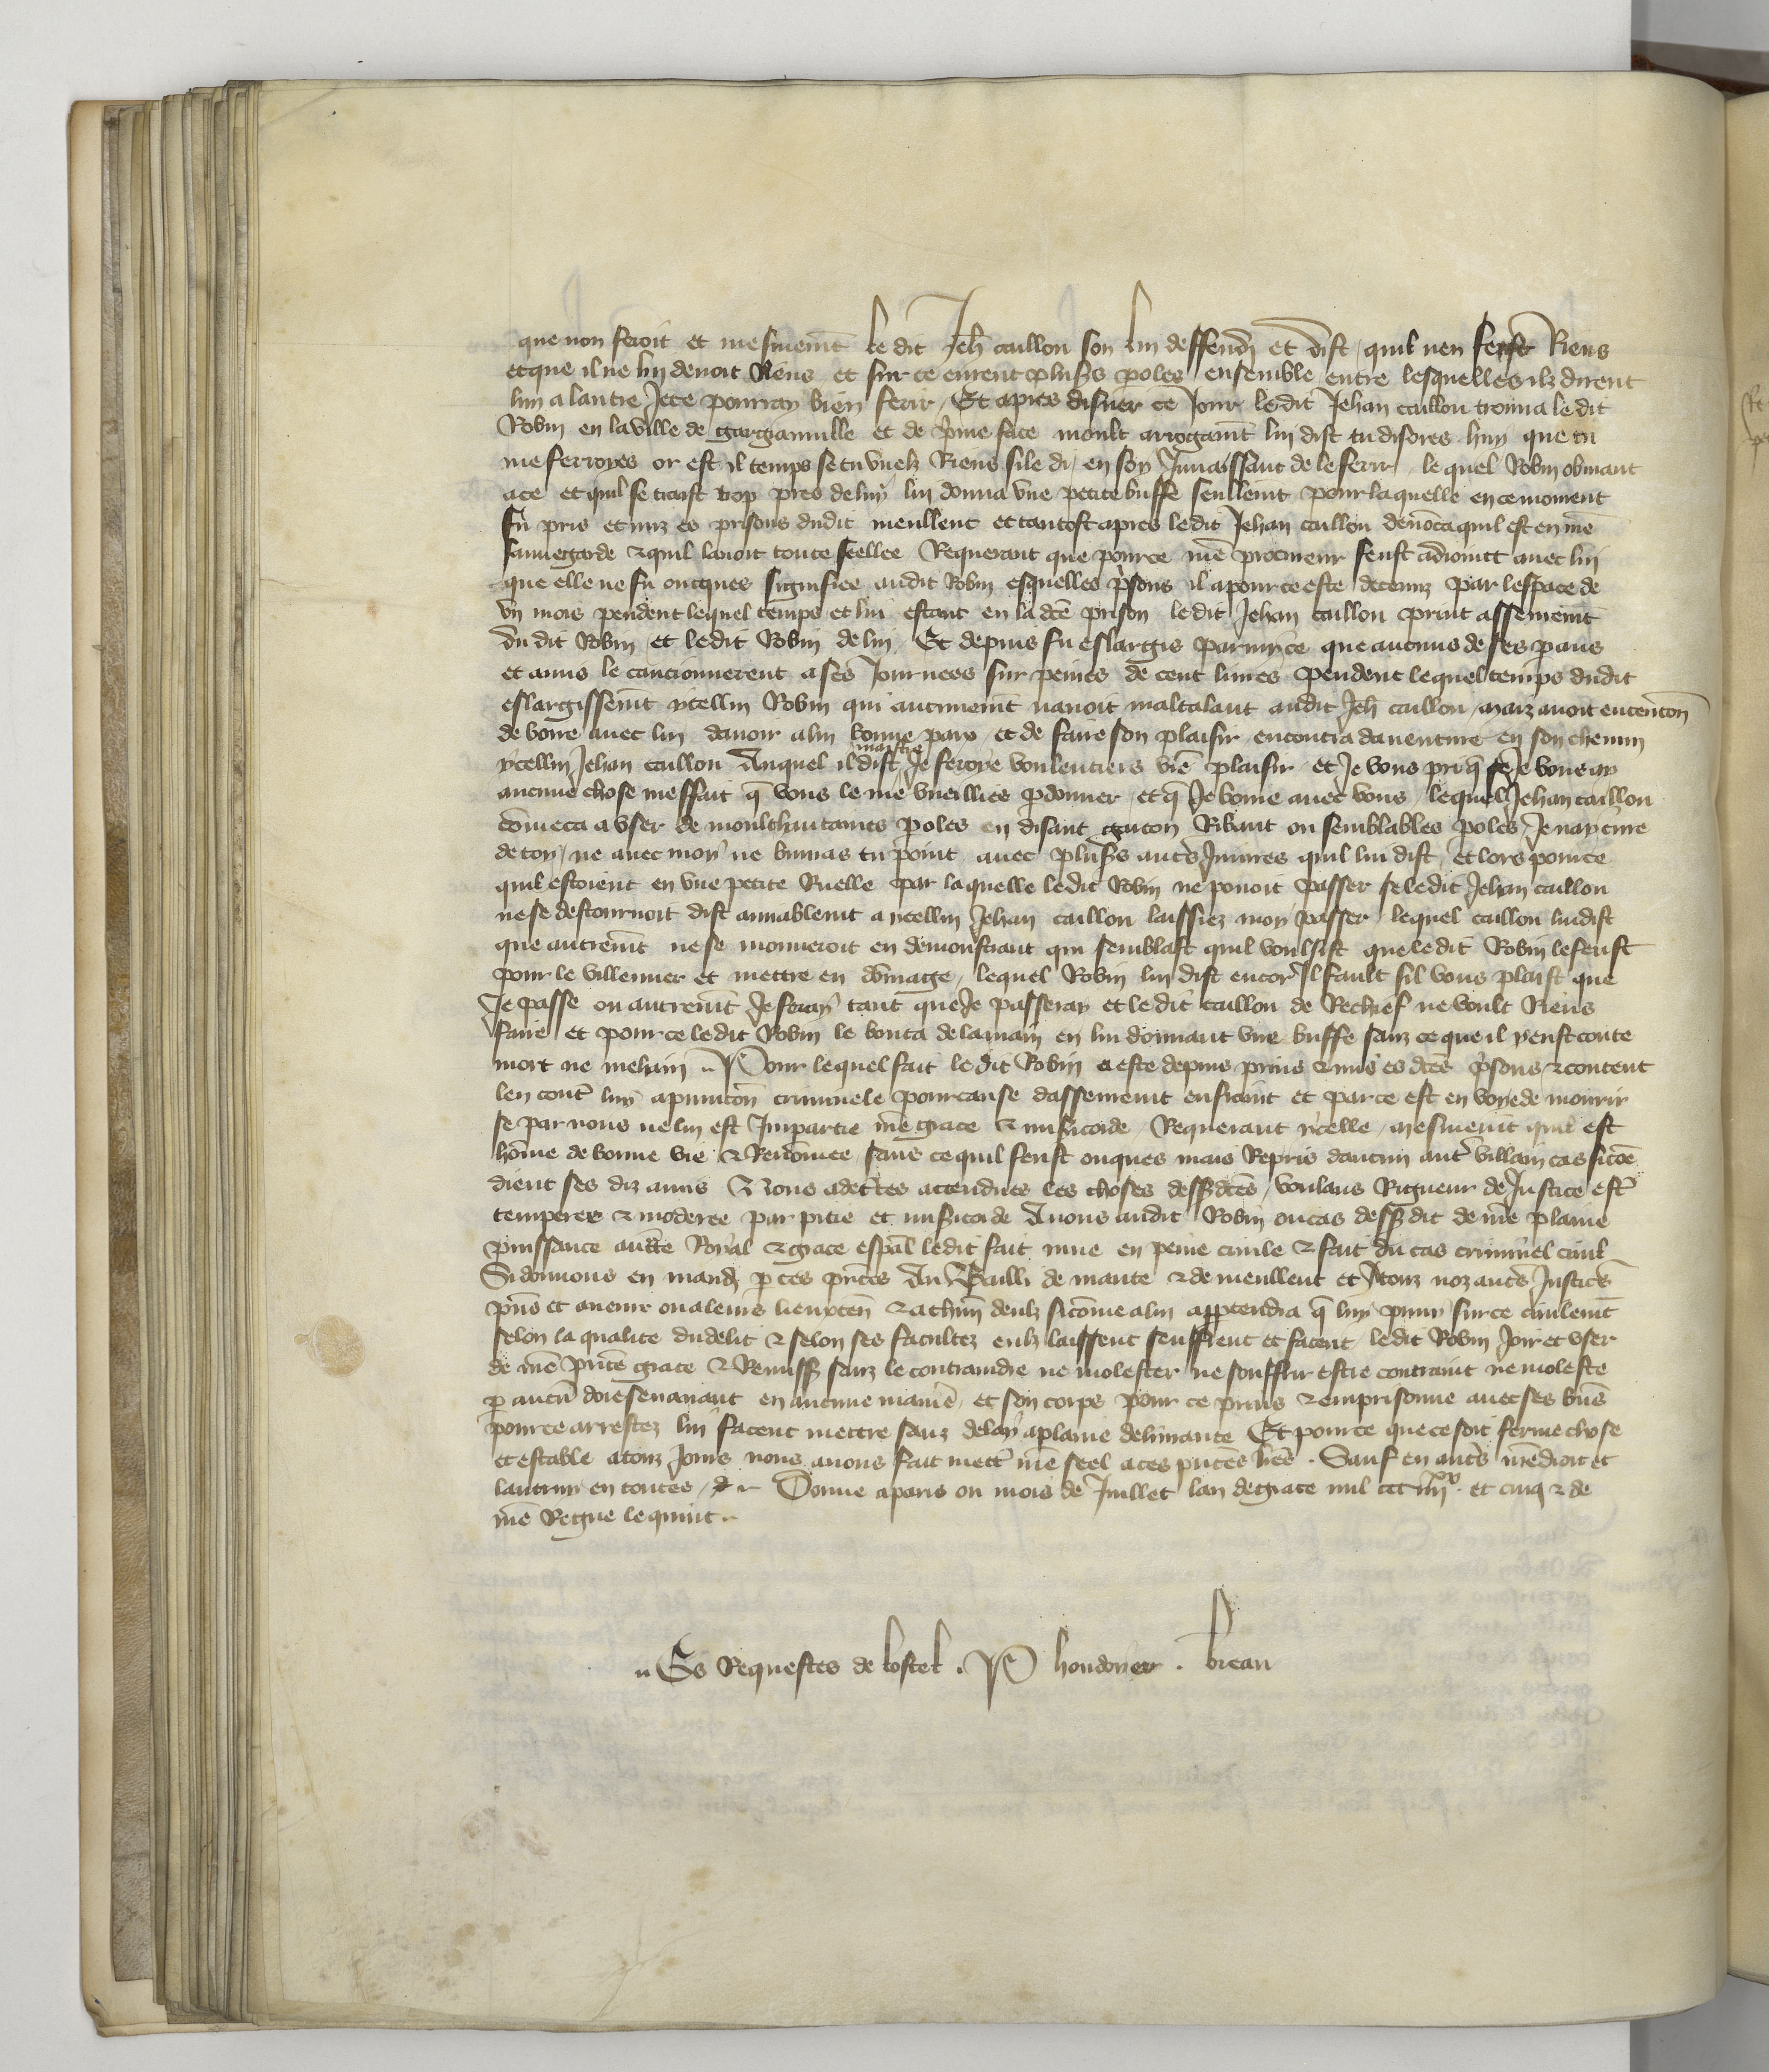 que non feroit et mesmemt̄ le dit Jeh̄ caillon son lui deffendi et dist quil nen feist Riens
et que il ne lui devoit Riens et sur ce eurent plus̄s ꝑoles ensemble entre lesquelles ilz dirent
lun a lautre Je te pourray bien ferir / Et apres disner ce Jour ledit Jehan caillon trouva ledit
Robin en la ville de gargianville et de pͥme face moult arrogamt̄ lui dist tu disoies huy que tu
me ferroyes or est il temps se tu vuelz Riens si le di en soy de le ferir lequel Robin obviant
a ce et quil se tiraist trop pres de luy lui donna une petite buffe seullemt̄ pour laquelle en ce moment
fu pris et mis es prisons dudit meullent et tantost apres ledit Jehan caillon denōca quil est en nrē
sauvegarde ⁊ quil lavoit toute seellee Requerant que pource nrē procureur feust adioinct avec lui
que elle ne fu oncques signifiee audit Robin esquelles pͥsons il a pour ce este detenuz par lespace de
un mois pendent lequel temps et lui estant en la dcē prison ledit Jehan caillon print assenremt̄
du dit Robin et ledit Robin de lui / Et depuis fu eslargis parmy ce que aucuns de ses ꝑens
et amis le caucionnerent a ses Journees sur peines de cent livres pendent lequel temps dudit
eslargissemt̄ ycellui Robin qui aucunemt̄ navoit maltalant audit Jeh̄ caillon / maiz avoit entencōn
de boire avec lui davoir a lui bonne paix et de faire son plaisir encontra daventure en son chemin
ycellui Jehan caillon Auquel il dist maistre Je feroye voulentiers biē plaisir et Je vous pri q̄ se Je vous ay
aucune chose meffait q̄ vous le me vueilliez ꝑdonner et q̄ Je boive avec vous / lequel Jehan caillon
cōmeca a user de moult hautaines ꝑoles en disant garcon Ribaut ou semblables ꝑoles Je nay cure
de toy / ne avec moy ne buvras tu point avec plus̄s autͤs Jniures quil lui dist / et lors pource
quil estoient en une petite Ruelle par laquelle ledit Robin ne povoit passer se ledit Jehan caillon
ne se destournoit dist amiablemt̄ a ycellui Jehan caillon laissiez moy passer lequel caillon lui dist
que autremt̄ ne se mouveroit en demonstrant qui semblast quil voulsist que ledit Robin le ferist
pour le villenner et mettre en dōmage / lequel Robin lui dist encorͤ Il fault sil vous plaist que
Je passe ou autremt̄ Je feray tant que Je passeray et ledit caillon de Rechief ne voult Riens
faire et pour ce ledit Robin le bouta de la main en lui donnant une buffe sanz ce que il y eust coute
mort ne mehain Pour lequel fait ledit Robin a este depuis prins ⁊ mis es dcēs pͥsons ⁊ content
len contͤ luy a punicōn criminele pour cause dassenremt̄ enfraint et par ce est en voye de mourir
se par nous ne lui est Impartie nrē grace ⁊ misͥicorde / Requerant ycelle mesmemt̄ quil est
hōme de bonne vie ⁊ Renōmee sans ce quil feust onques mais Repris daucun autͤ villain cas sicōe
dient ses diz amis Et Nous adecͬtes attendues les choses dess̄dcēs / voulans Rigueur de Justice estͤ
temperee ⁊ moderee par pitie et misͥicorde Avons audit Robin ou cas dess̄dit de nrē plaine
puissance auctͤ Royal ⁊ grace esp̄al ledit fait mue en peine civile ⁊ fait du cas criminel civil
Si donnons en mandt̄ ꝑ ces pn̄tes Au Bailli de mante ⁊ de meullent et A touz noz autͤs Justicͬs
pn̄s et avenir ou a leurs lieuxten̄ ⁊ a chūn deulz sicōme a lui appartendra q̄ luy puny sur ce civilemt̄
selon la qualite du delit ⁊ selon ses facultez eulz laissent seuffrent et facent ledit Robin Joir et user
de nrē pn̄te grace ⁊ Remiss̄ sanz le contraindre ne molester ne souffrir estre contraint ne moleste
ꝑ aucū doresenavant en aucune manͥe et son corps pour ce prins ⁊ emprisonne avec ses biēs
pour ce arrestez lui facent mettre sanz delay a plaine delivrance Et pource que ce soit ferme chose
et estable a touz Jours nous avons fait mettͤ nrē seel a ces pn̄tes lrēs . Sauf en autͤs nrē droit et
lautruy en toutes / Donne a paris ou mois de Juillet lan de grace mil ccc iiii.xx et cinq ⁊ de
nrē Regne le quint

Es Requestes de lostel . P houdoyer . brean